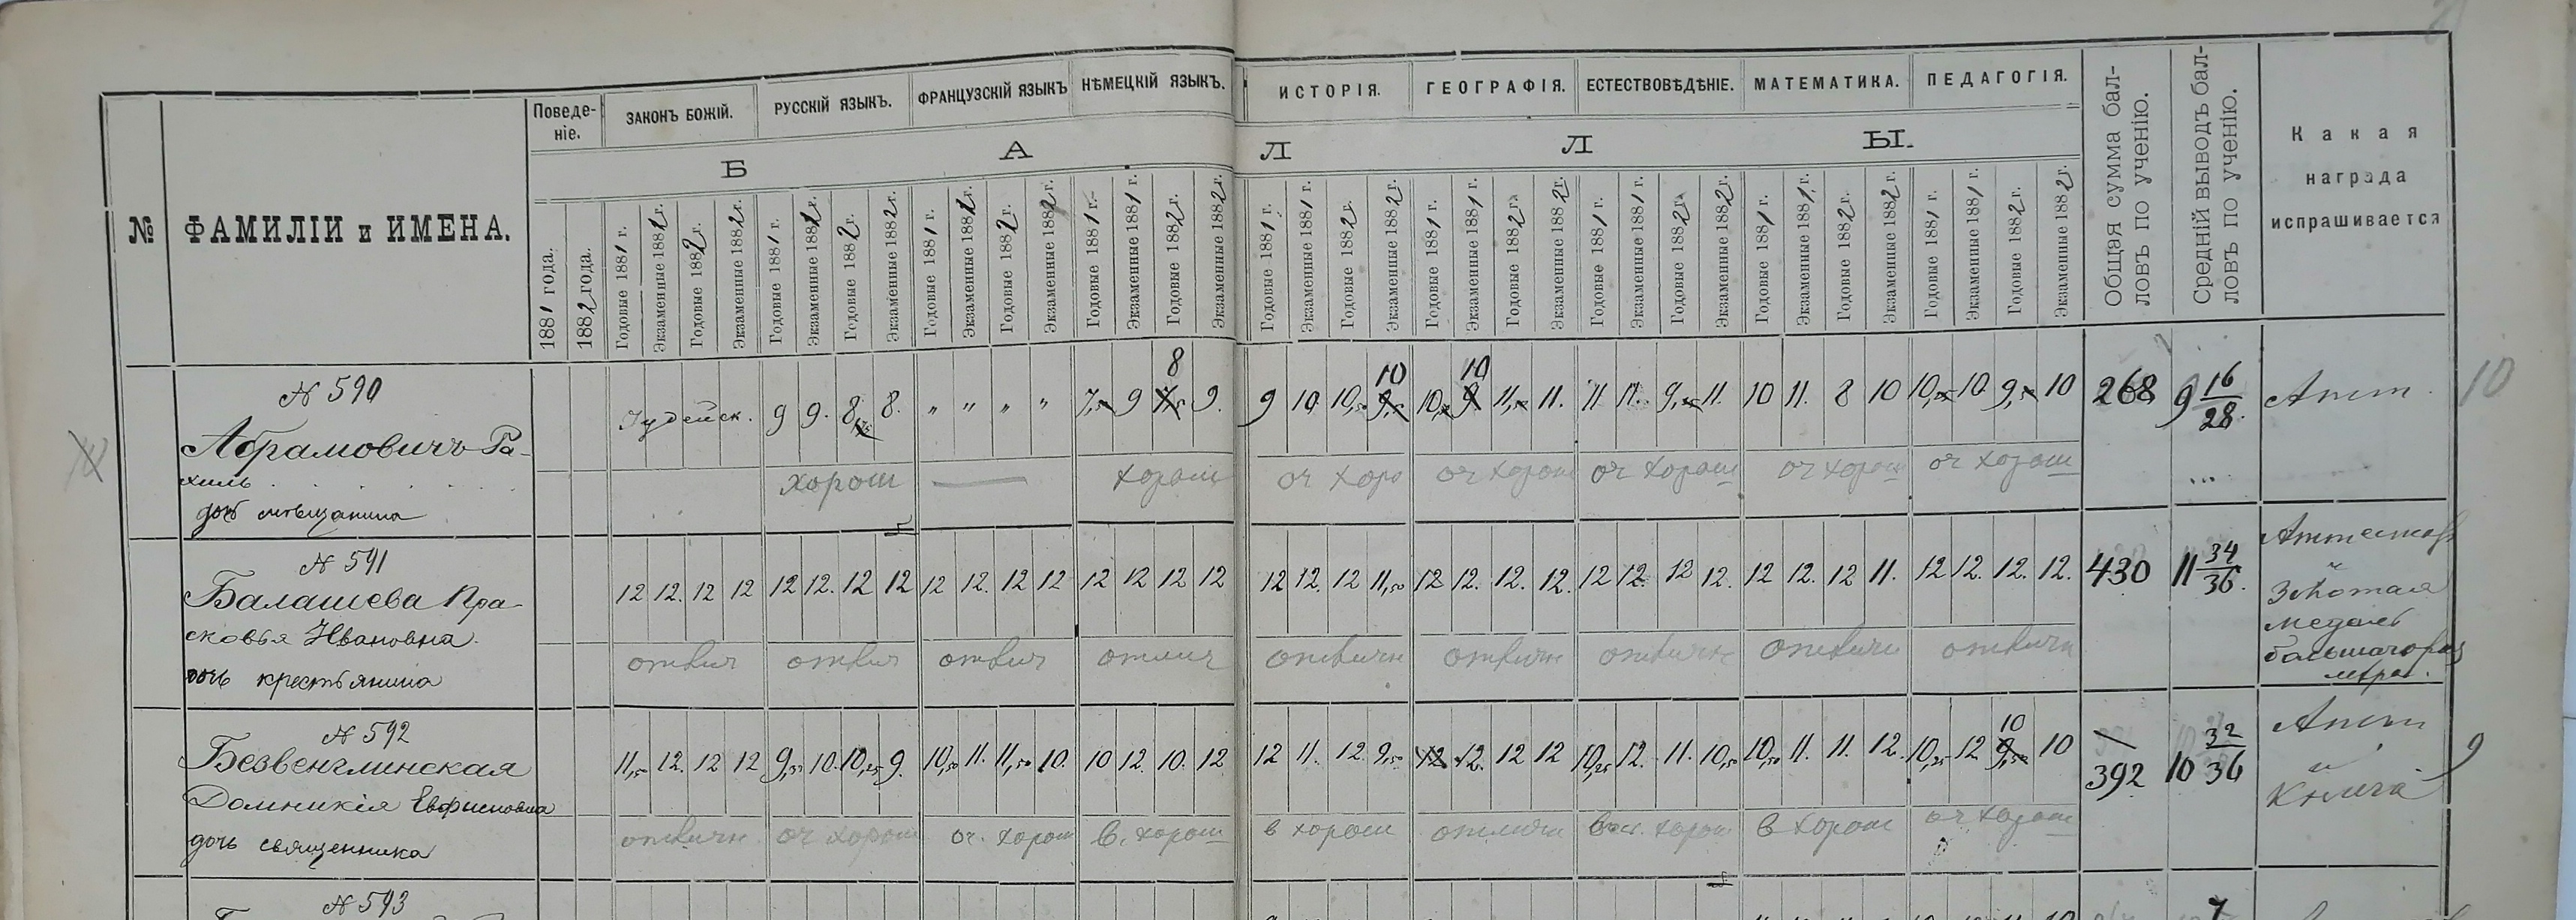 № ФАМИЛІИ и ИМЕНА. Поведе-ніе. ЗАКОНЪ БОЖІЙ. РУССКІЙ ЯЗЫКЪ. ФРАНЦУЗСКІЙ ЯЗЫКЪ НѢМЕЦКІЙ ЯЗЫКЪ. ИСТОРІЯ. ГЕОГРАФІЯ. ЕСТЕСТВОВѢДѢНІЕ. МАТЕМАТИКА. ПЕДАГОГІЯ. Общая сумма бал-ловъ по ученію. Средній выводъ бал-ловъ по ученію. Какая награда испрашивается
Б А Л Л Ы.
1881 года. 1882 года. Годовые 1881 г. Экзаменные 1881 г. Годовые 1882 г. Экзаменные 1882 г. Годовые 1881 г. Экзаменные 1881 г. Годовые 1882 г. Экзаменные 1882 г. Годовые 1881 г. Экзаменные 1881 г. Годовые 1882 г. Экзаменные 1882 г. Годовые 1881 г. Экзаменные 1881 г. Годовые 1882 г. Экзаменные 1882 г. Годовые 1881 г. Экзаменные 1881 г. Годовые 1882 г. Экзаменные 1882 г. Годовые 1881 г. Экзаменные 1881 г. Годовые 1882 г. Экзаменные 1882 г. Годовые 1881 г. Экзаменные 1881 г. Годовые 1882 г. Экзаменные 1882 г. Годовые 1881 г. Экзаменные 1881 г. Годовые 1882 г. Экзаменные 1882 г. Годовые 1881 г. Экзаменные 1881 г. Годовые 1882 г. Экзаменные 1882 г.
N 590
8 10 10
Іудейск. 9 9. 8 8. " " " " 9 9. 9 10 10,50 11. 11 11. 11. 10 11. 8 10 10 10 268 9 16/28. Атт. 10
Абрамовичъ Ра-
хиль
дочь мѣщанина
хорош — хорош оч хоро оч хорош оч хорош оч хорош оч хорош
N 591
Балашева Пра-
сковья Ивановна.
дочь крестьянина
12 12. 12 12 12 12. 12 12 12 12. 12 12 12 12 12 12 12 12. 12 11,50 12 12. 12. 12. 12 12. 12 12. 12 12. 12 11. 12 12. 12. 12. 430 11 34/36.
Аттестат
и
Золотая
медаль
большаго раз
мѣра.
отлич отлич отлич отлич отличн отличн отличн отличн отличн
N 592
Безвенглинская
Домникія Евфисиовна
дочь священника
10
11,50 12. 12 12 9,33 10. 10,25 9. 10,50 11. 11,50 10. 10 12. 10. 12 12 11. 12. 9,50 12 12. 12 12 10,25 12. 11. 10,50 10,50 11. 11. 12. 10,25 12 9,50 10 392 10 32/36
Атт
и
Книга
9
отличн оч хорош оч. хорош в. хорош в хорош отличн хорош в хорош оч хорош
N 593
7